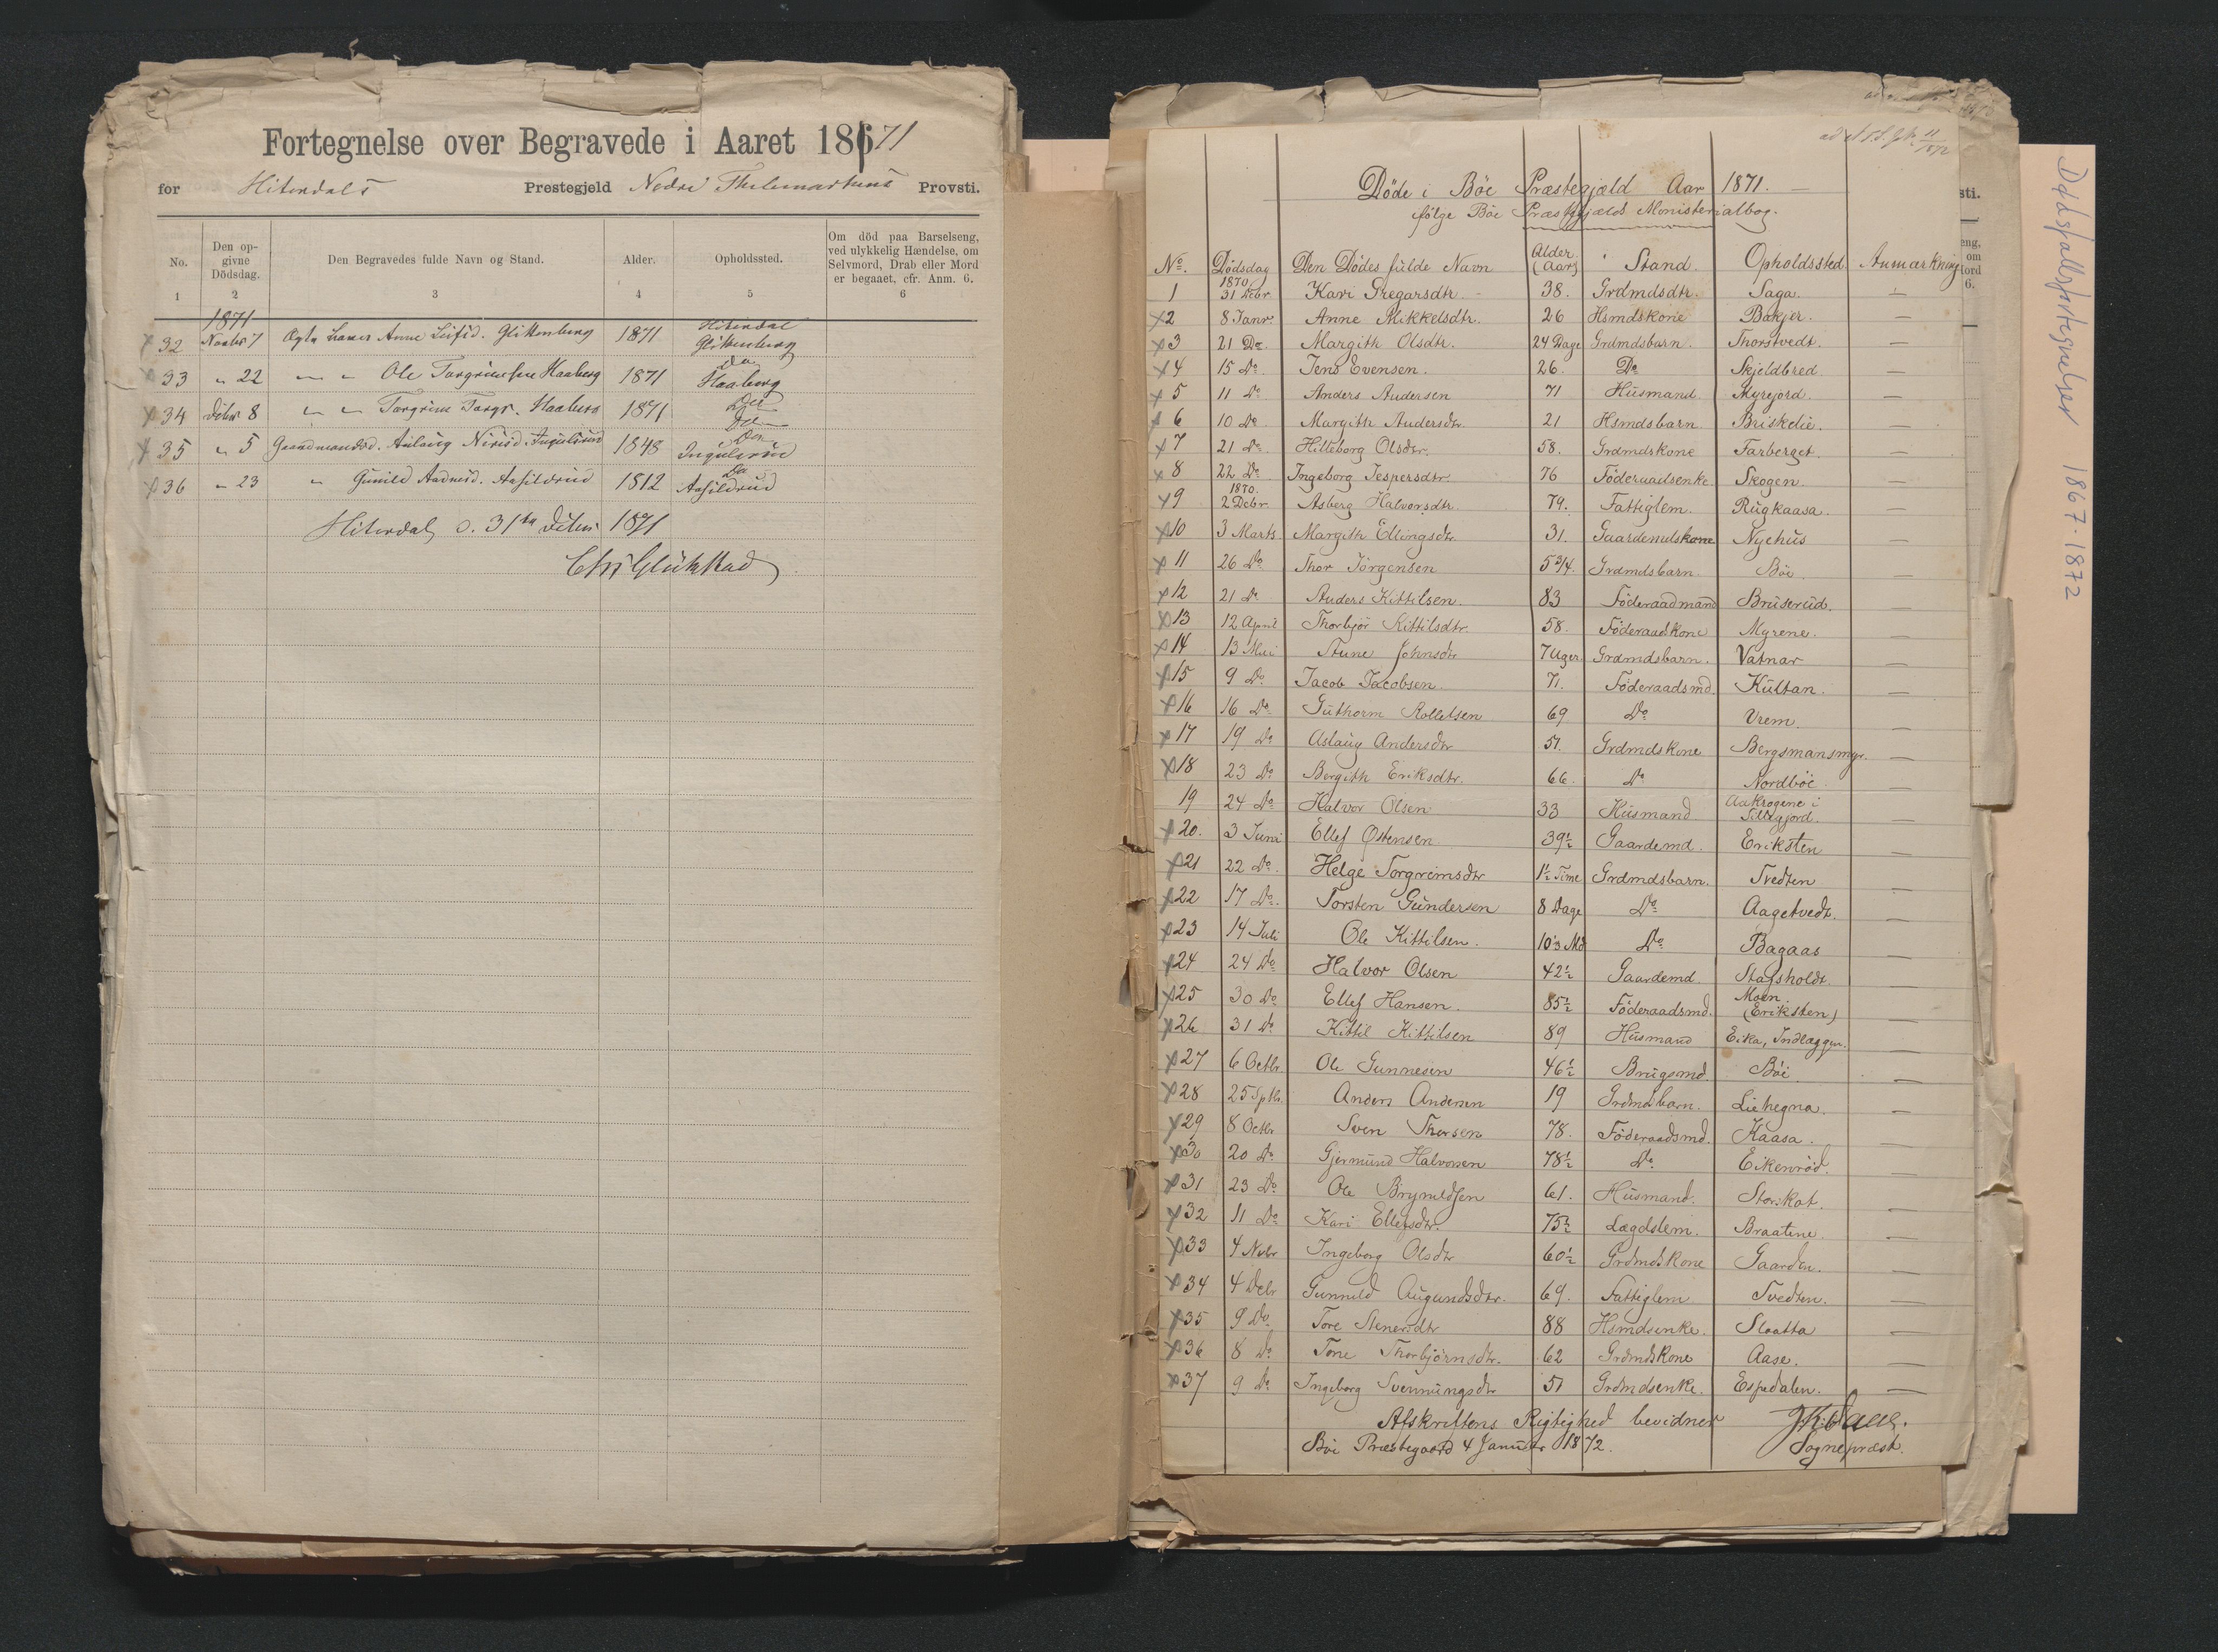 Fortegnelse over Begravede i Aaret 18671
for Hiterdals Prestegjeld Nedre Thelemarkens Provsti.
No. Den opgivne Dödsdag. Den Begravedes fulde Navn og Stand. Alder. Opholdssted. Om död paa Barselseng, ved ulykkelig Hændelse, om Selvmord, Drab eller Mord er begaaet, cfr. Anm. 6.
1 2 3 4 5 6
1871
x 32 Novbr 7 Ægte Barn Anne Leifsd. Glittenberg 1871 Hiterdal Glittenberg
x 33 " 22 " " Ole Torgrimsen Haaberg 1871 Do Haaberg
x 34 Decbr 8 " " Torgrim Torgr. Haaberg 1871 Do Do
x 35 " 5 Gaardmandsd. Aslaug Nirisd. Ingulsrud 1848 Do Ingulsrud
x 36 " 23 " Gunild Aadnesd. Aasildrud 1812 Do Aasildrud
Hiterdal d. 31te Decbr 1871
Chr Glückstad
Döde i Böe Præstegjæld Aar 1871.
følge Böe Præstegjælds Ministerialbog.
No. Dödsdag Den Dödes fulde Navn Alder (Aar) Stand. Opholdssted. Anmærkning
1 1870 31 Debr. Kari Gregarsdtr. 38. Grdmdsdtr. Saga. —
x 2 8 Janr. Anne Mikkelsdtr. 26 Hsmdskone Bakjer. —
x 3 21 Do. Margith Olsdtr. 24 Dage Grdmdsbarn. Thorstvedt. —
x 4 15 Do. Jens Evensen. 26. Do Skjeldbred. —
x 5 11 Do Anders Andersen 71 Husmand. Myrejord. —
x 6 10 Do Margith Andersdtr. 21 Hsmdsbarn. Briskelie. —
x 7 21 Do Hilleborg Olsdtr. 58. Grdmdskone Farberget. —
x 8 22 Do Ingeborg Jespersdtr. 76 Föderaadsenke. Skogen. —
x 9 1870. 2 Debr. Asberg Halvorsdtr. 79. Fattiglem. Rugkaasa. —
x 10 3 Marts Margith Ellingsdtr. 31. Gaardemdskone Nyehus —
x 11 26 Do Thor Jörgensen 5 3/4. Grdmdsbarn. Böe. —
x 12 21 Do Anders Kittilsen. 83 Föderaadmand Bruserud. —
x 13 12 April Thorbjör Kittilsdtr. 58. Föderaadskone Myrene. —
x 14 13 Mai Aune Johnsdtr 7 Uger Grdmdsbarn. Vatnar —
x 15 9 Do Jacob Jacobsen 71. Föderaadsmd. Kultan. —
x 16 16 Do Guthorm Rolleisen 69 Do Vrem. —
x 17 19 Do Aslaug Andersdtr 51. Grdmdskone Bergsmansmyr. —
x 18 23 Do Bergith Eriksdtr. 66. Do Nordböe. —
19 24 Do Halvor Olsen 33 Husmand Aakrogene i Silligjord. —
x 20. 3 Juni Ellef Østensen 39½ Gaardemd. Eriksten —
x 21 22 Do. Helge Torgrimsdtr 1½ Time Grdmdsbarn. Tvedten —
x 22 17 Do. Torsten Gundersen 8 Dage Do Aagetvedt. —
x 23 14 Juli Ole Kittilsen. 10⅓ Md Do Bagaas —
x 24 24 Do Halvor Olsen 42½ Gaardemd. Stafsholdt. —
x 25 30 Do Ellef Hansen. 85½ Föderaadsmd. Moen. (Eriksten) —
x 26 31 Do Kittil Kittilsen 89 Husmand Eika, Indlæggen. —
x 27 6 Octbr. Ole Gunnesen 46½ Brugsmd. Böe. —
x 28 25 Sptbr. Anders Andersen 19 Grdmdsbarn. Liehegna. —
x 29 8 Octbr Sven Thorsen 78. Föderaadsmd. Kaasa. —
x 30 20 Do Gjermund Halvorsen 78½ Do Eikenröd. —
x 31 23 Do Ole Brynildsen 61. Husmand. Storikot. —
x 32 11 Do Kari Ellefsdtr. 75½ Lægdslem. Braatene. —
x 33 4 Nvbr Ingeborg Olsdtr 60½ Grdmdskone Gaarden. —
x 34 4 Debr Gunnild Augundsdtr. 69. Fattiglem Tvedten. —
x 35 9 Do Tore Stenersdtr 88 Hsmdsenke. Slaatta —
x 36 8 Do Tone Thorbjörnsdtr. 62 Grdmdskone Aase. —
x 37 9 Do Ingeborg Svenningsdtr 51 Grdmdsenke. Espedalen. —
Afskriftens Rigtighed bevidner
Böe Præstegaard 4 Januar 1872. Sognepræst.
sti.
Dødsfallsfortegnelser 1867-1872